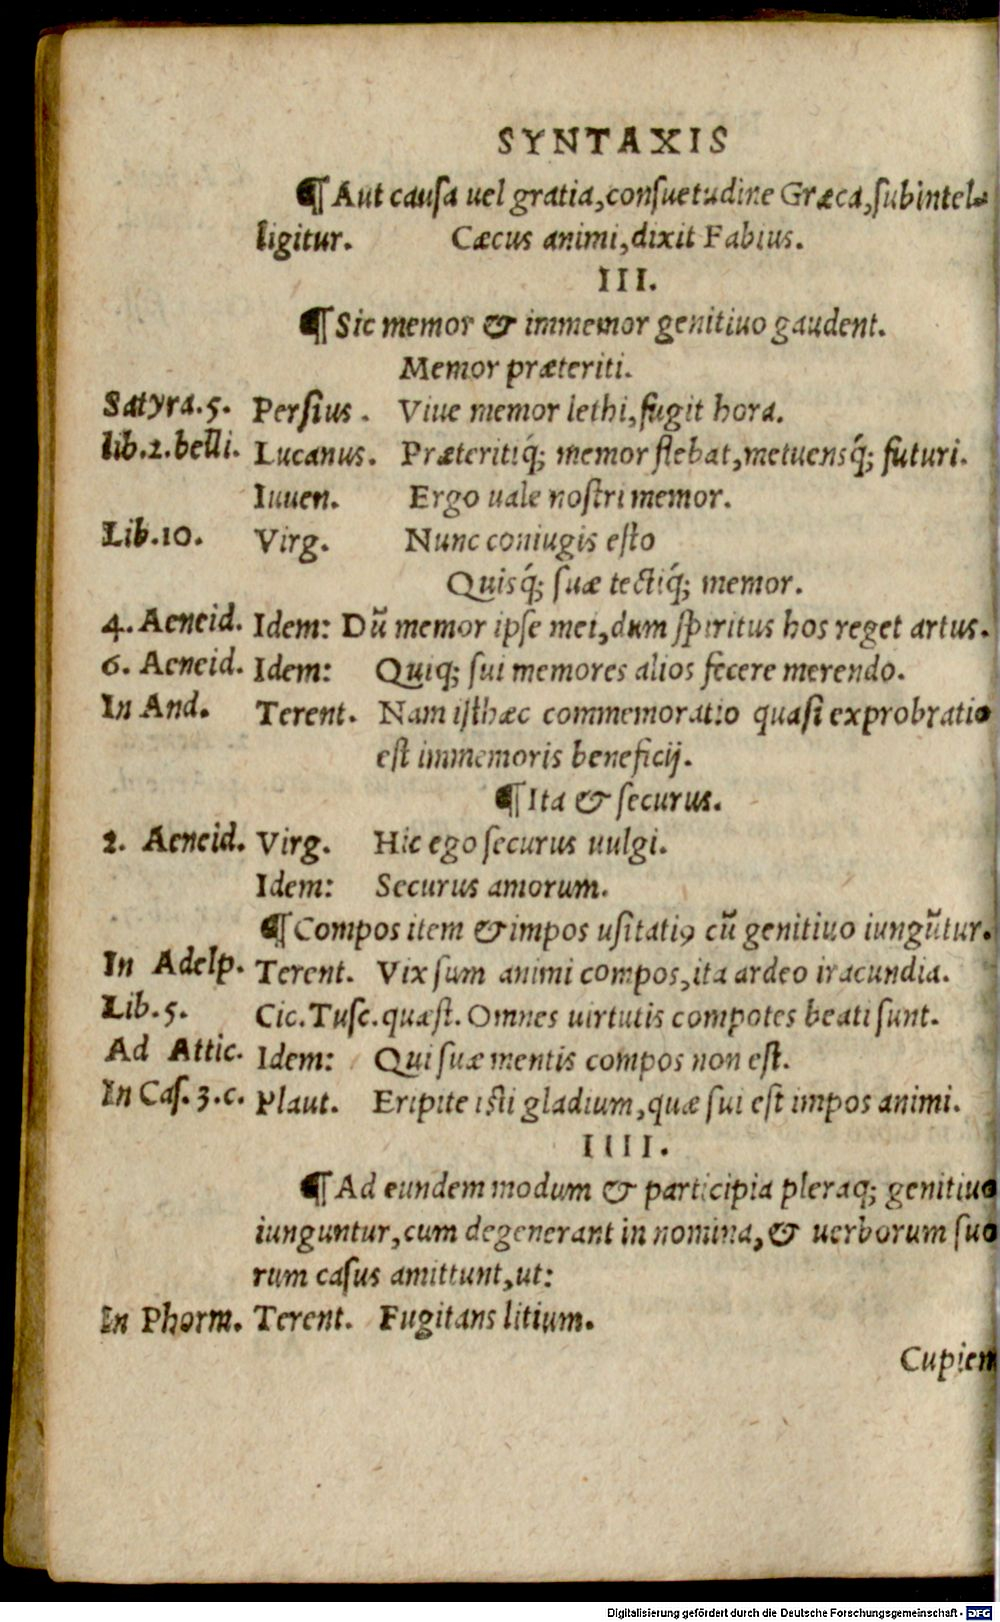 SYNTAXIS
¶ Aut causa uel gratia, consuetudine Græca, subintel-
ligitur. Cæcus animi, dixit Fabius.
III.
¶ Sic memor & immemor genitiuo gaudent.
Memor præteriti.
Satyra.5. Persius. Viue memor lethi, fugit hora.
lib.2.belli. Lucanus. Præteritiq́; memor flebat, metuensq́; futuri.
Iuuen. Ergo uale nostri memor.
Lib.10. Virg. Nunc coniugis esto
Quisq́; suæ tectiq́; memor.
4. Aeneid. Idem: Dũ memor ipse mei, dum spiritus hos reget artus.
6. Aeneid. Idem: Quiq; sui memores alios fecere merendo.
In And. Terent. Nam isthæc commemoratio quasi exprobratio
est immemoris beneficij.
¶ Ita & securus.
2. Aeneid. Virg. Hic ego securus uulgi.
Idem: Securus amorum.
¶ Compos item & impos usitatiꝰ cũ genitiuo iungũtur.
In Adelp. Terent. Vix sum animi compos, ita ardeo iracundia.
Lib.5. Cic.Tusc.quæst. Omnes uirtutis compotes beati sunt.
Ad Attic. Idem: Qui suæ mentis compos non est.
In Cas.3.c. Plaut. Eripite isti gladium, quæ sui est impos animi.
IIII.
¶ Ad eundem modum & participia pleraq; genitiuo
iunguntur, cum degenerant in nomina, & uerborum suo
rum casus amittunt, ut:
In Phorm. Terent. Fugitans litium.
Cupien
Digitalisierung gefördert durch die Deutsche Forschungsgemeinschaft - DFG